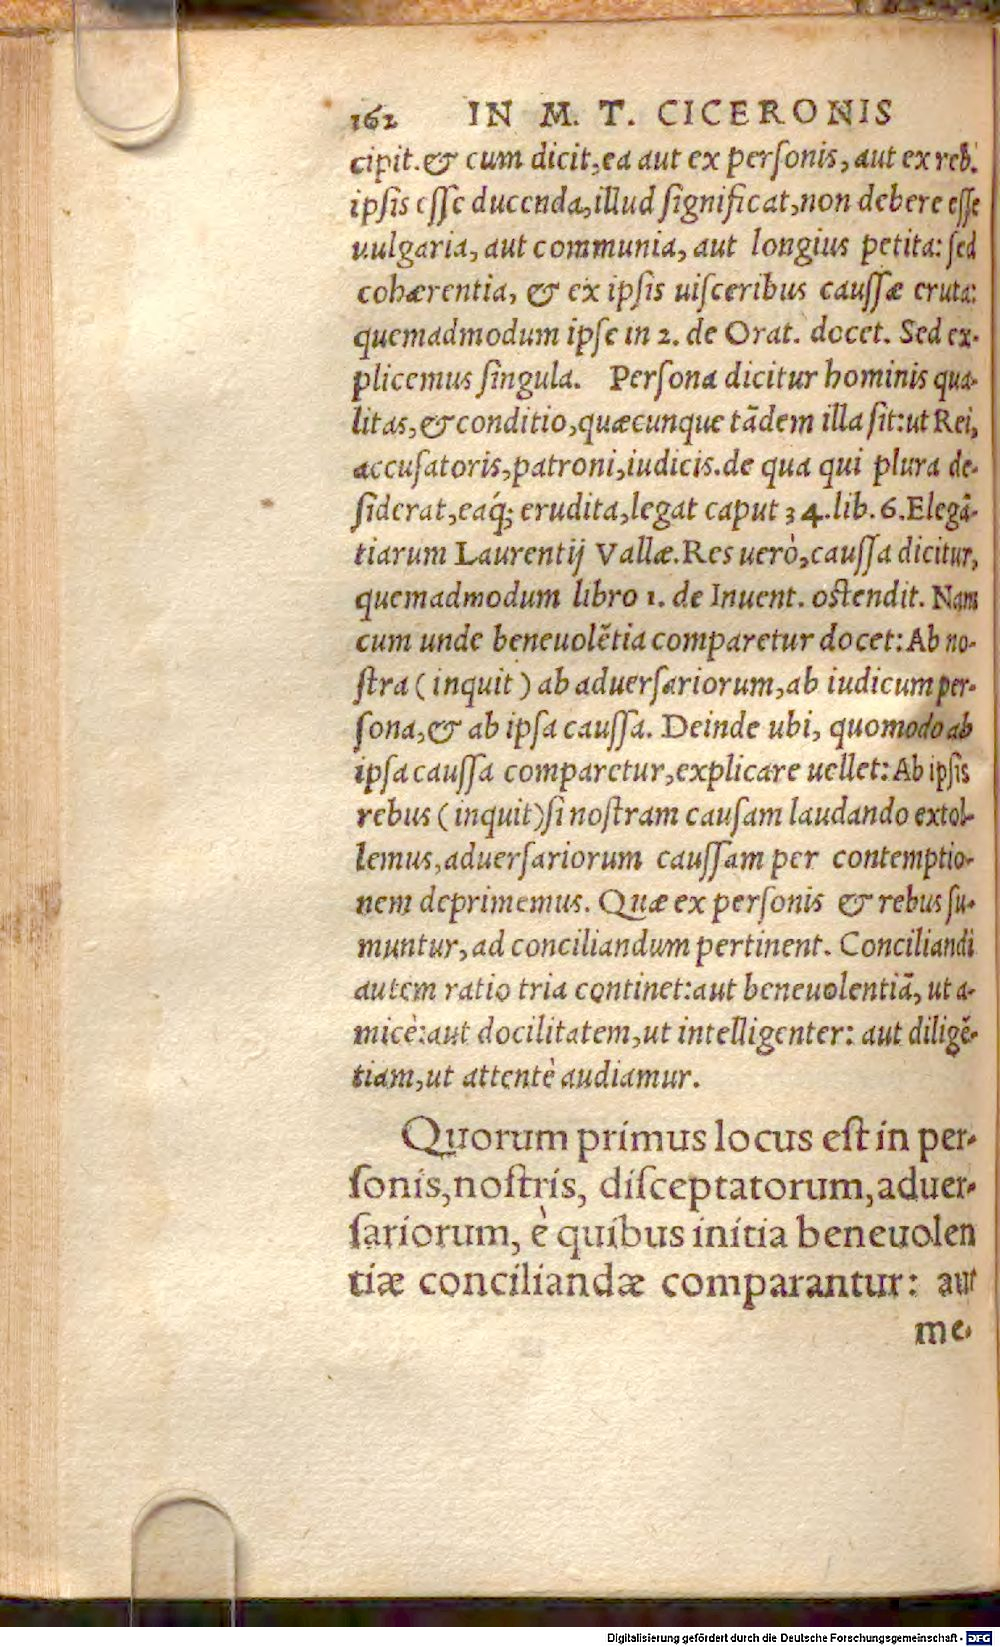 162 IN M. T. CICERONIS
cipit. & cum dicit, ea aut ex personis, aut ex reb.
ipsis esse ducenda, illud significat, non debere esse
uulgaria, aut communia, aut longius petita: sed
cohærentia, & ex ipsis uisceribus caussæ eruta:
quemadmodum ipse in 2. de Orat. docet. Sed ex-
plicemus singula. Persona dicitur hominis qua-
litas, & conditio, quæcunque tãdem illa sit: ut Rei,
accusatoris, patroni, iudicis. de qua qui plura de-
siderat, eaq́; erudita, legat caput 34. lib. 6. Elegã-
tiarum Laurentij Vallæ. Res uerò, caussa dicitur,
quemadmodum libro 1. de Inuent. ostendit. Nam
cum unde beneuolẽtia comparetur docet: Ab no-
stra ( inquit ) ab aduersariorum, ab iudicum per-
sona, & ab ipsa caussa. Deinde ubi, quomodo ab
ipsa caussa comparetur, explicare uellet: Ab ipsis
rebus ( inquit ) si nostram causam laudando extol-
lemus, aduersariorum caussam per contemptio-
nem deprimemus. Quæ ex personis & rebus su-
muntur, ad conciliandum pertinent. Conciliandi
autem ratio tria continet: aut beneuolentiã, ut a-
micè: aut docilitatem, ut intelligenter: aut diligẽ-
tiam, ut attentè audiamur.
Quorum primus locus est in per-
sonis, nostris, disceptatorum, aduer-
sariorum, è quibus initia beneuolen
tiæ conciliandæ comparantur: aut
me-
Digitalisierung gefördert durch die Deutsche Forschungsgemeinschaft - DFG